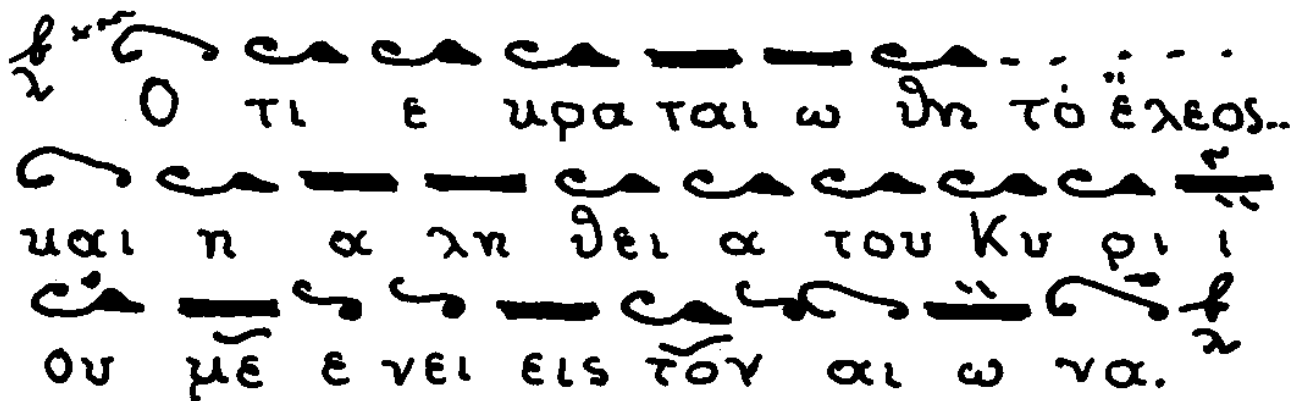 Ο τι ε κρα ται ω θη τό ἔλεος..
και η α λη θει α του Κυ ρι ι
ου με ε νει εις τόν αι ω να.